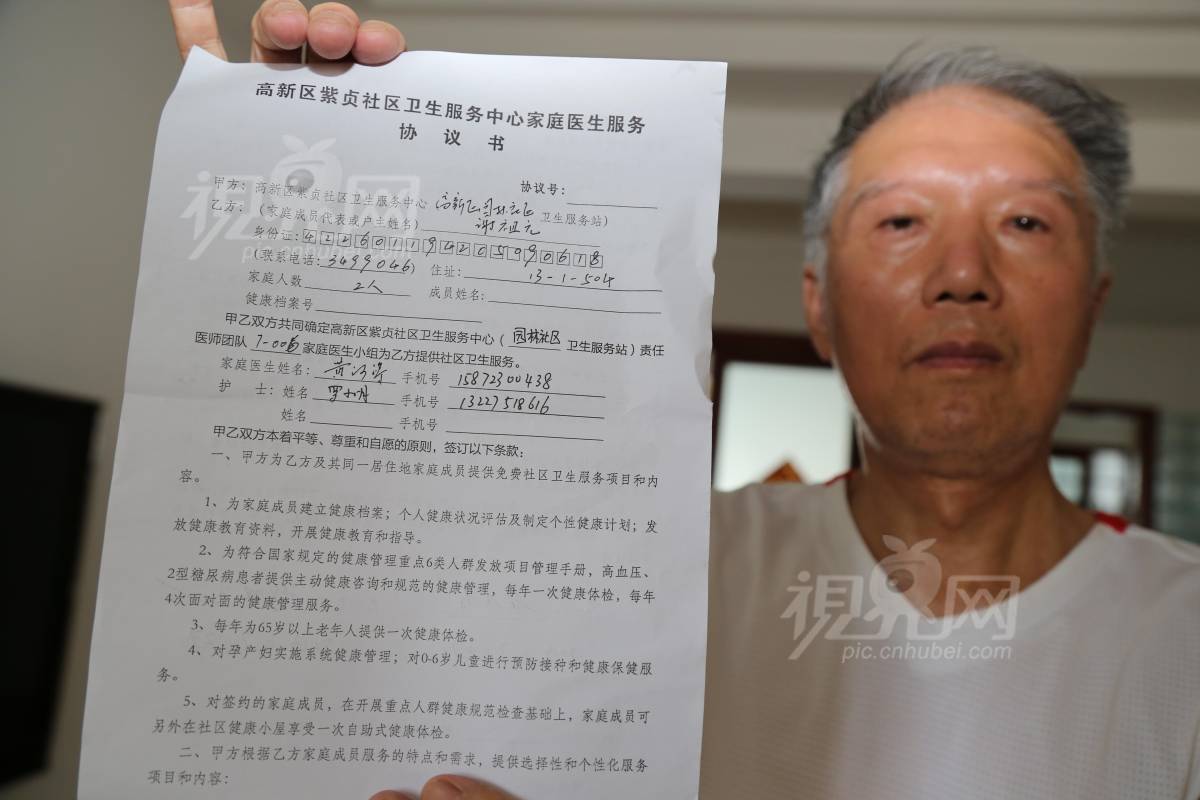 高新区紫贞社区卫生服务中心家庭医生服务
协 议 书
协议号:
甲方:高新区紫贞社区卫生服务中心 高新区园林社区 卫生服务站)
乙方:(家庭成员代表或户主姓名) 谢祖元
身份证:
(联系电话:3499046) 住址: 13-1-504
家庭人数 2人 成员姓名:
健康档案号
甲乙双方共同确定高新区紫贞社区卫生服务中心( 园林社区 卫生服务站)责任
医师团队 家庭医生小组为乙方提供社区卫生服务。
家庭医生姓名: 手机号 15872300438
护 士:姓名 手机号 13227518616
姓名 手机号
甲乙双方本着平等、尊重和自愿的原则,签订以下条款:
一、甲方为乙方及其同一居住地家庭成员提供免费社区卫生服务项目和内
容。
1、为家庭成员建立健康档案;个人健康状况评估及制定个性健康计划;发
放健康教育资料,开展健康教育和指导。
2、为符合国家规定的健康管理重点6类人群发放项目管理手册,高血压、
2型糖尿病患者提供主动健康咨询和规范的健康管理,每年一次健康体检,每年
4次面对面的健康管理服务。
3、每年为65岁以上老年人提供一次健康体检。
4、对孕产妇实施系统健康管理;对0-6岁儿童进行预防接种和健康保健服
务。
5、对签约的家庭成员,在开展重点人群健康规范检查基础上,家庭成员可
另外在社区健康小屋享受一次自助式健康体检。
二、甲方根据乙方家庭成员服务的特点和需求,提供选择性和个性化服务
项目和内容:
视界网
视界网
pic.cnhubei.com